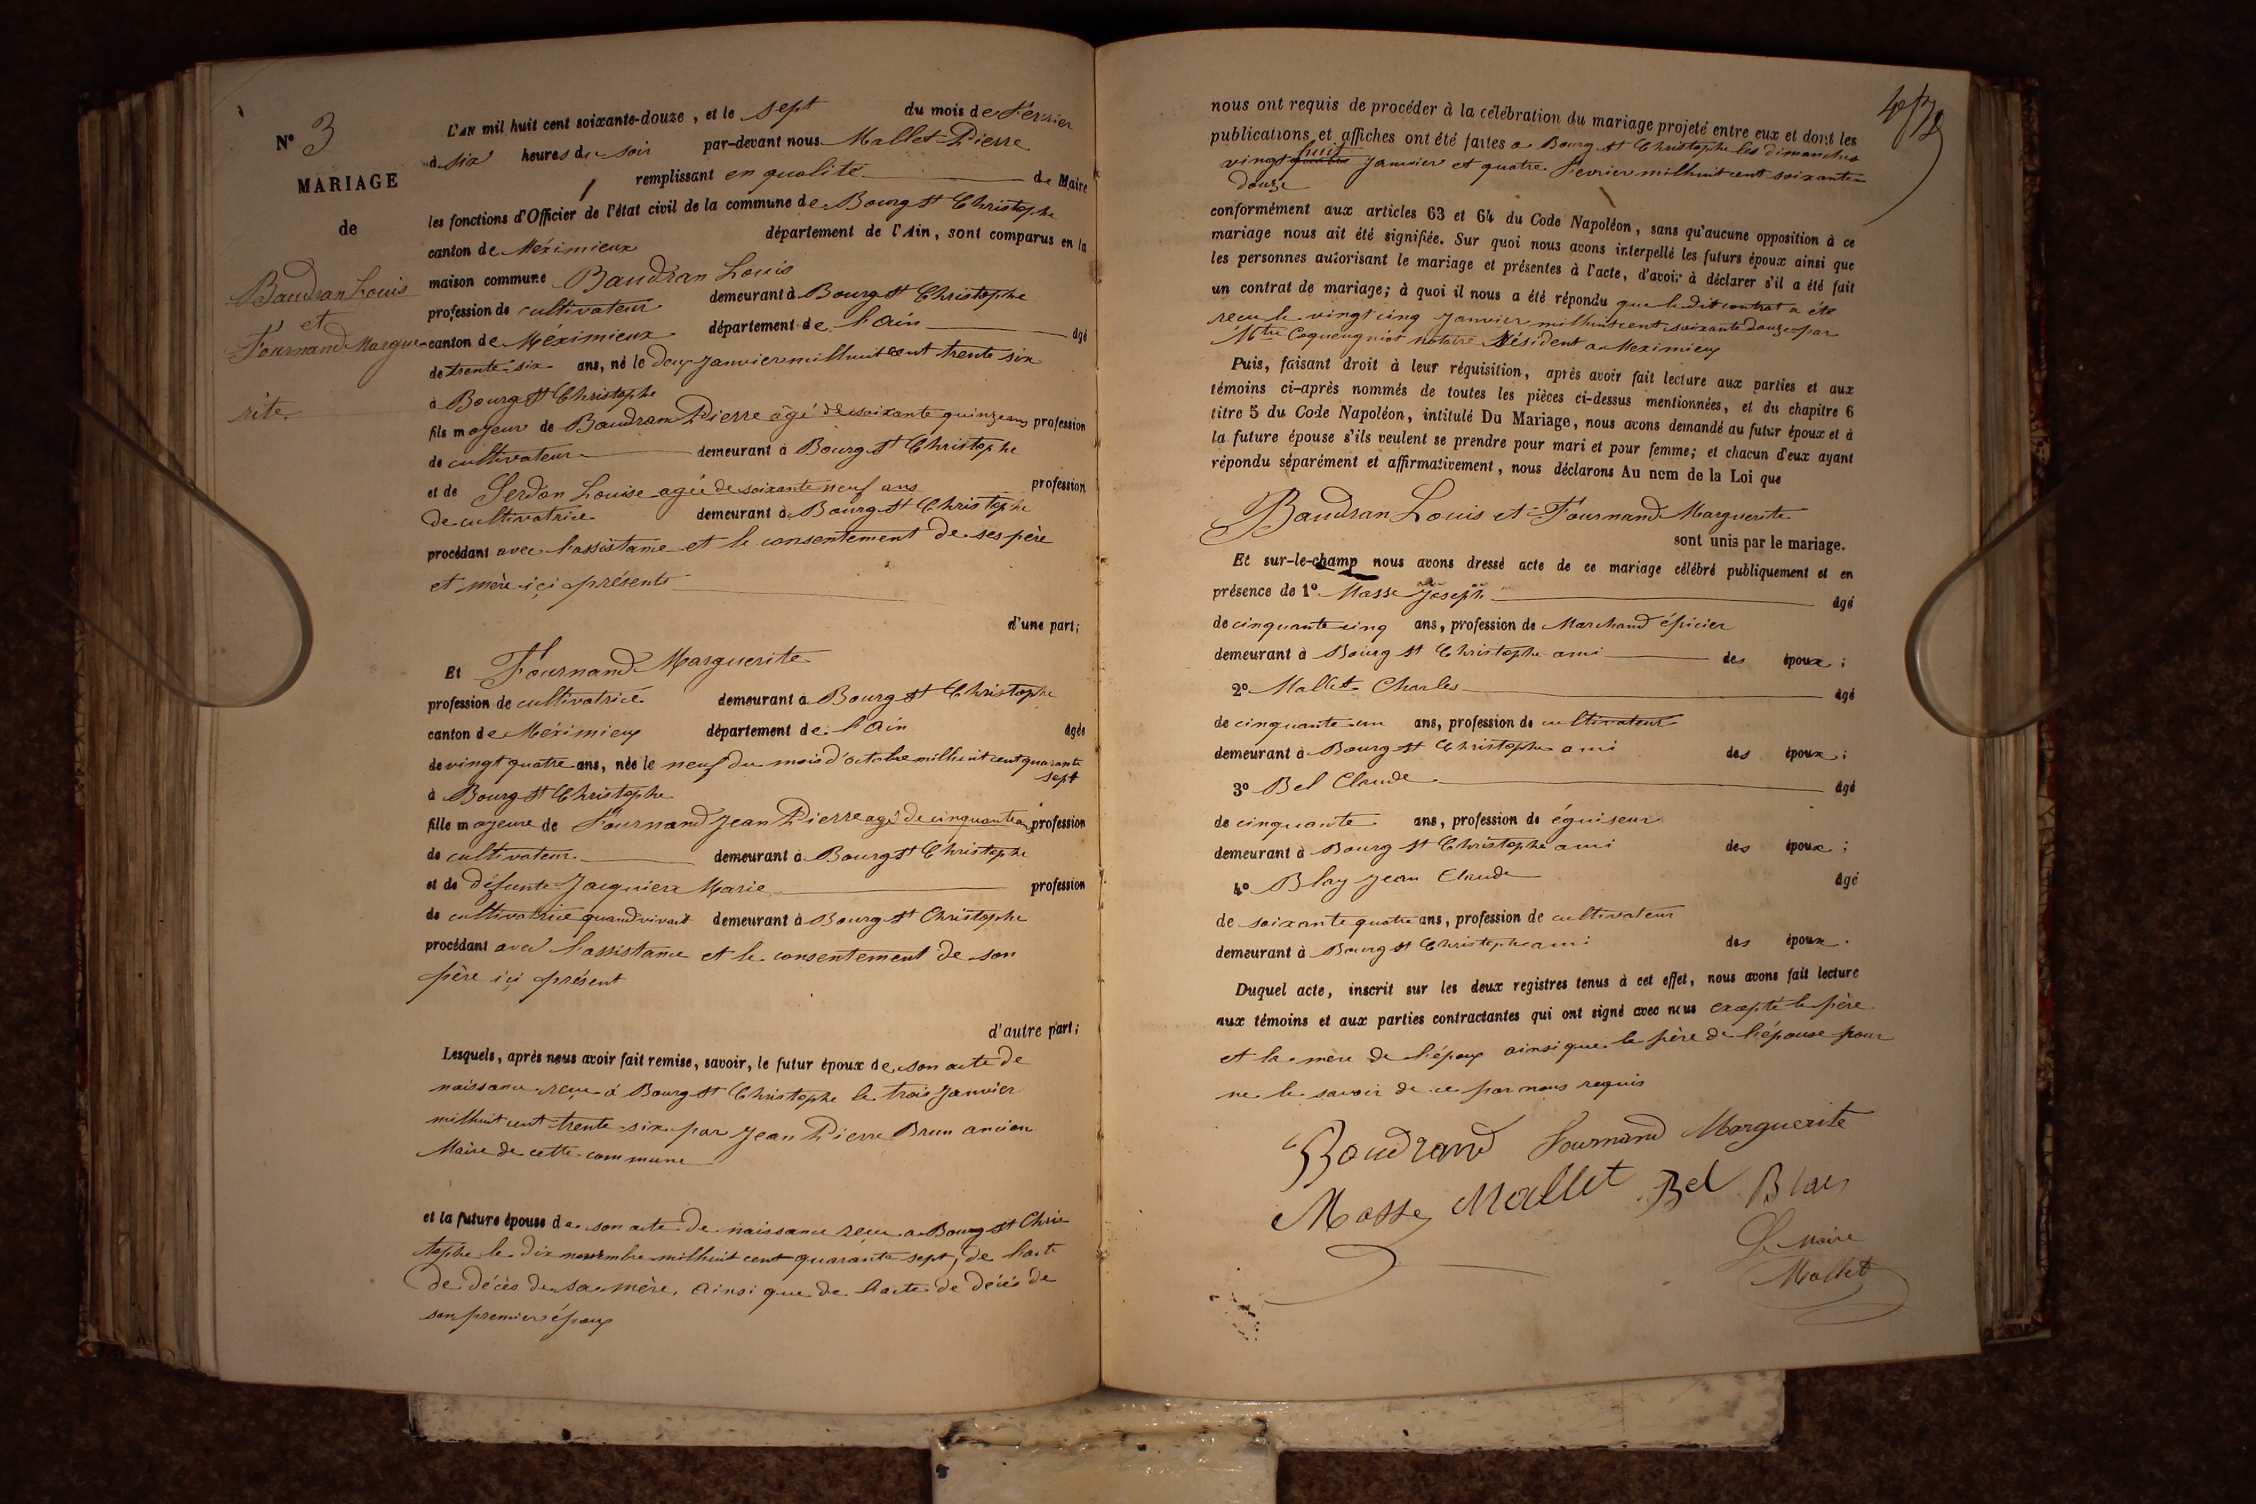 N° 3
MARIAGE
de
Baudran Louis
et
Fournand Margue-
rite
L'AN mil huit cent soixante-douze, et le sept du mois de Février
à six heures du soir par-devant nous Mallet Pierre
remplissant en qualité de Maire
les fonctions d'Officier de l'état civil de la commune de Bourg St Christophe
canton de Méximieux département de l'Ain, sont comparus en la
maison commune Baudran Louis
profession de cultivateur demeurant à Bourg St Christophe
canton de Méximieux département de l'Ain âgé
de trente-six ans, né le deux Janvier mil huit cent trente six
à Bourg St Christophe
fils majeur de Baudran Pierre âgé de soixante quinze ans profession
de cultivateur demeurant à Bourg St Christophe
et de Serdon Louise agée de soixante neuf ans profession
de cultivatrice demeurant à Bourg St Christophe
procédant avec l'assistance et le consentement de ses père
et mère içi présents
d'une part;
Et Fournand Marguerite
profession de cultivatrice demeurant à Bourg St Christophe
canton de Méximieux département de l'Ain âgée
de vingt quatre ans, née le neuf du mois d'octobre mil huit cent quarante
sept
à Bourg St Christophe
fille majeure de Fournand Jean Pierre agé de cinquante ans profession
de cultivateur demeurant à Bourg St Christophe
et de défunte Jacquier Marie profession
de cultivatrice quand vivait demeurant à Bourg St Christophe
procédant avec l'assistance et le consentement de son
père içi présent
d'autre part;
Lesquels, après nous avoir fait remise, savoir, le futur époux de son acte de
naissance reçu à Bourg St Christophe le trois Janvier
mil huit cent trente-six par Jean Pierre Brun ancien
Maire de cette commune
et la future épouse de son acte de naissance reçu a Bourg St Chris
tophe le dix novembre mil huit cent quarante sept, de l'acte
de décès de sa mère, ainsi que de l'acte de décés de
son premier époux
nous ont requis de procéder à la célébration du mariage projeté entre eux et dont les
publications et affiches ont été faites a Bourg St Christophe les dimanches
huit
vingt quatre Janvier et quatre Fevrier mil huit cent soixante-
douze
conformément aux articles 63 et 64 du Code Napoléon, sans qu'aucune opposition à ce
mariage nous ait été signifiée. Sur quoi nous avons interpellé les futurs époux ainsi que
les personnes autorisant le mariage et présentes à l'acte, d'avoir à déclarer s'il a été fait
un contrat de mariage; à quoi il nous a été répondu que le dit contrat a été
reçu le vingt cinq Janvier mil huit cent soixante douze par
Mtre Coqueugniot notaire Résident a Meximieux
Puis, faisant droit à leur réquisition, après avoir fait lecture aux parties et aux
témoins ci-après nommés de toutes les pièces ci-dessus mentionnées, et du chapitre 6
titre 5 du Code Napoléon, intitulé Du Mariage, nous avons demandé au futur époux et à
la future épouse s'ils veulent se prendre pour mari et pour femme; et chacun d'eux ayant
répondu séparément et affirmativement, nous déclarons Au nom de la Loi que
Baudran Louis et Fournand Marguerite
sont unis par le mariage.
Et sur-le-champ nous avons dressé acte de ce mariage célébré publiquement et en
présence de 1° Masse Joseph âgé
de cinquante cinq ans, profession de Marchand épicier
demeurant à Bourg St Christophe ami des époux;
2° Mallet Charles âgé
de cinquante un ans, profession de cultivateur
demeurant à Bourg St Christophe ami des époux;
3° Bel Claude âgé
de cinquante ans, profession de éguiseur
demeurant à Bourg St Christophe ami des époux;
4° Blay Jean Claude âgé
de soixante quatre ans, profession de cultivateur
demeurant à Bourg St Christophe ami des époux.
Duquel acte, inscrit sur les deux registres tenus à cet effet, nous avons fait lecture
aux témoins et aux parties contractantes qui ont signé avec nous excepté le père
et la mère de l'époux ainsi que le père de l'épouse pour
ne le savoir de ce par nous requis
Baudrand Fournand Marguerite
Masse Mallet Bel Blay
Le Maire
Mallet